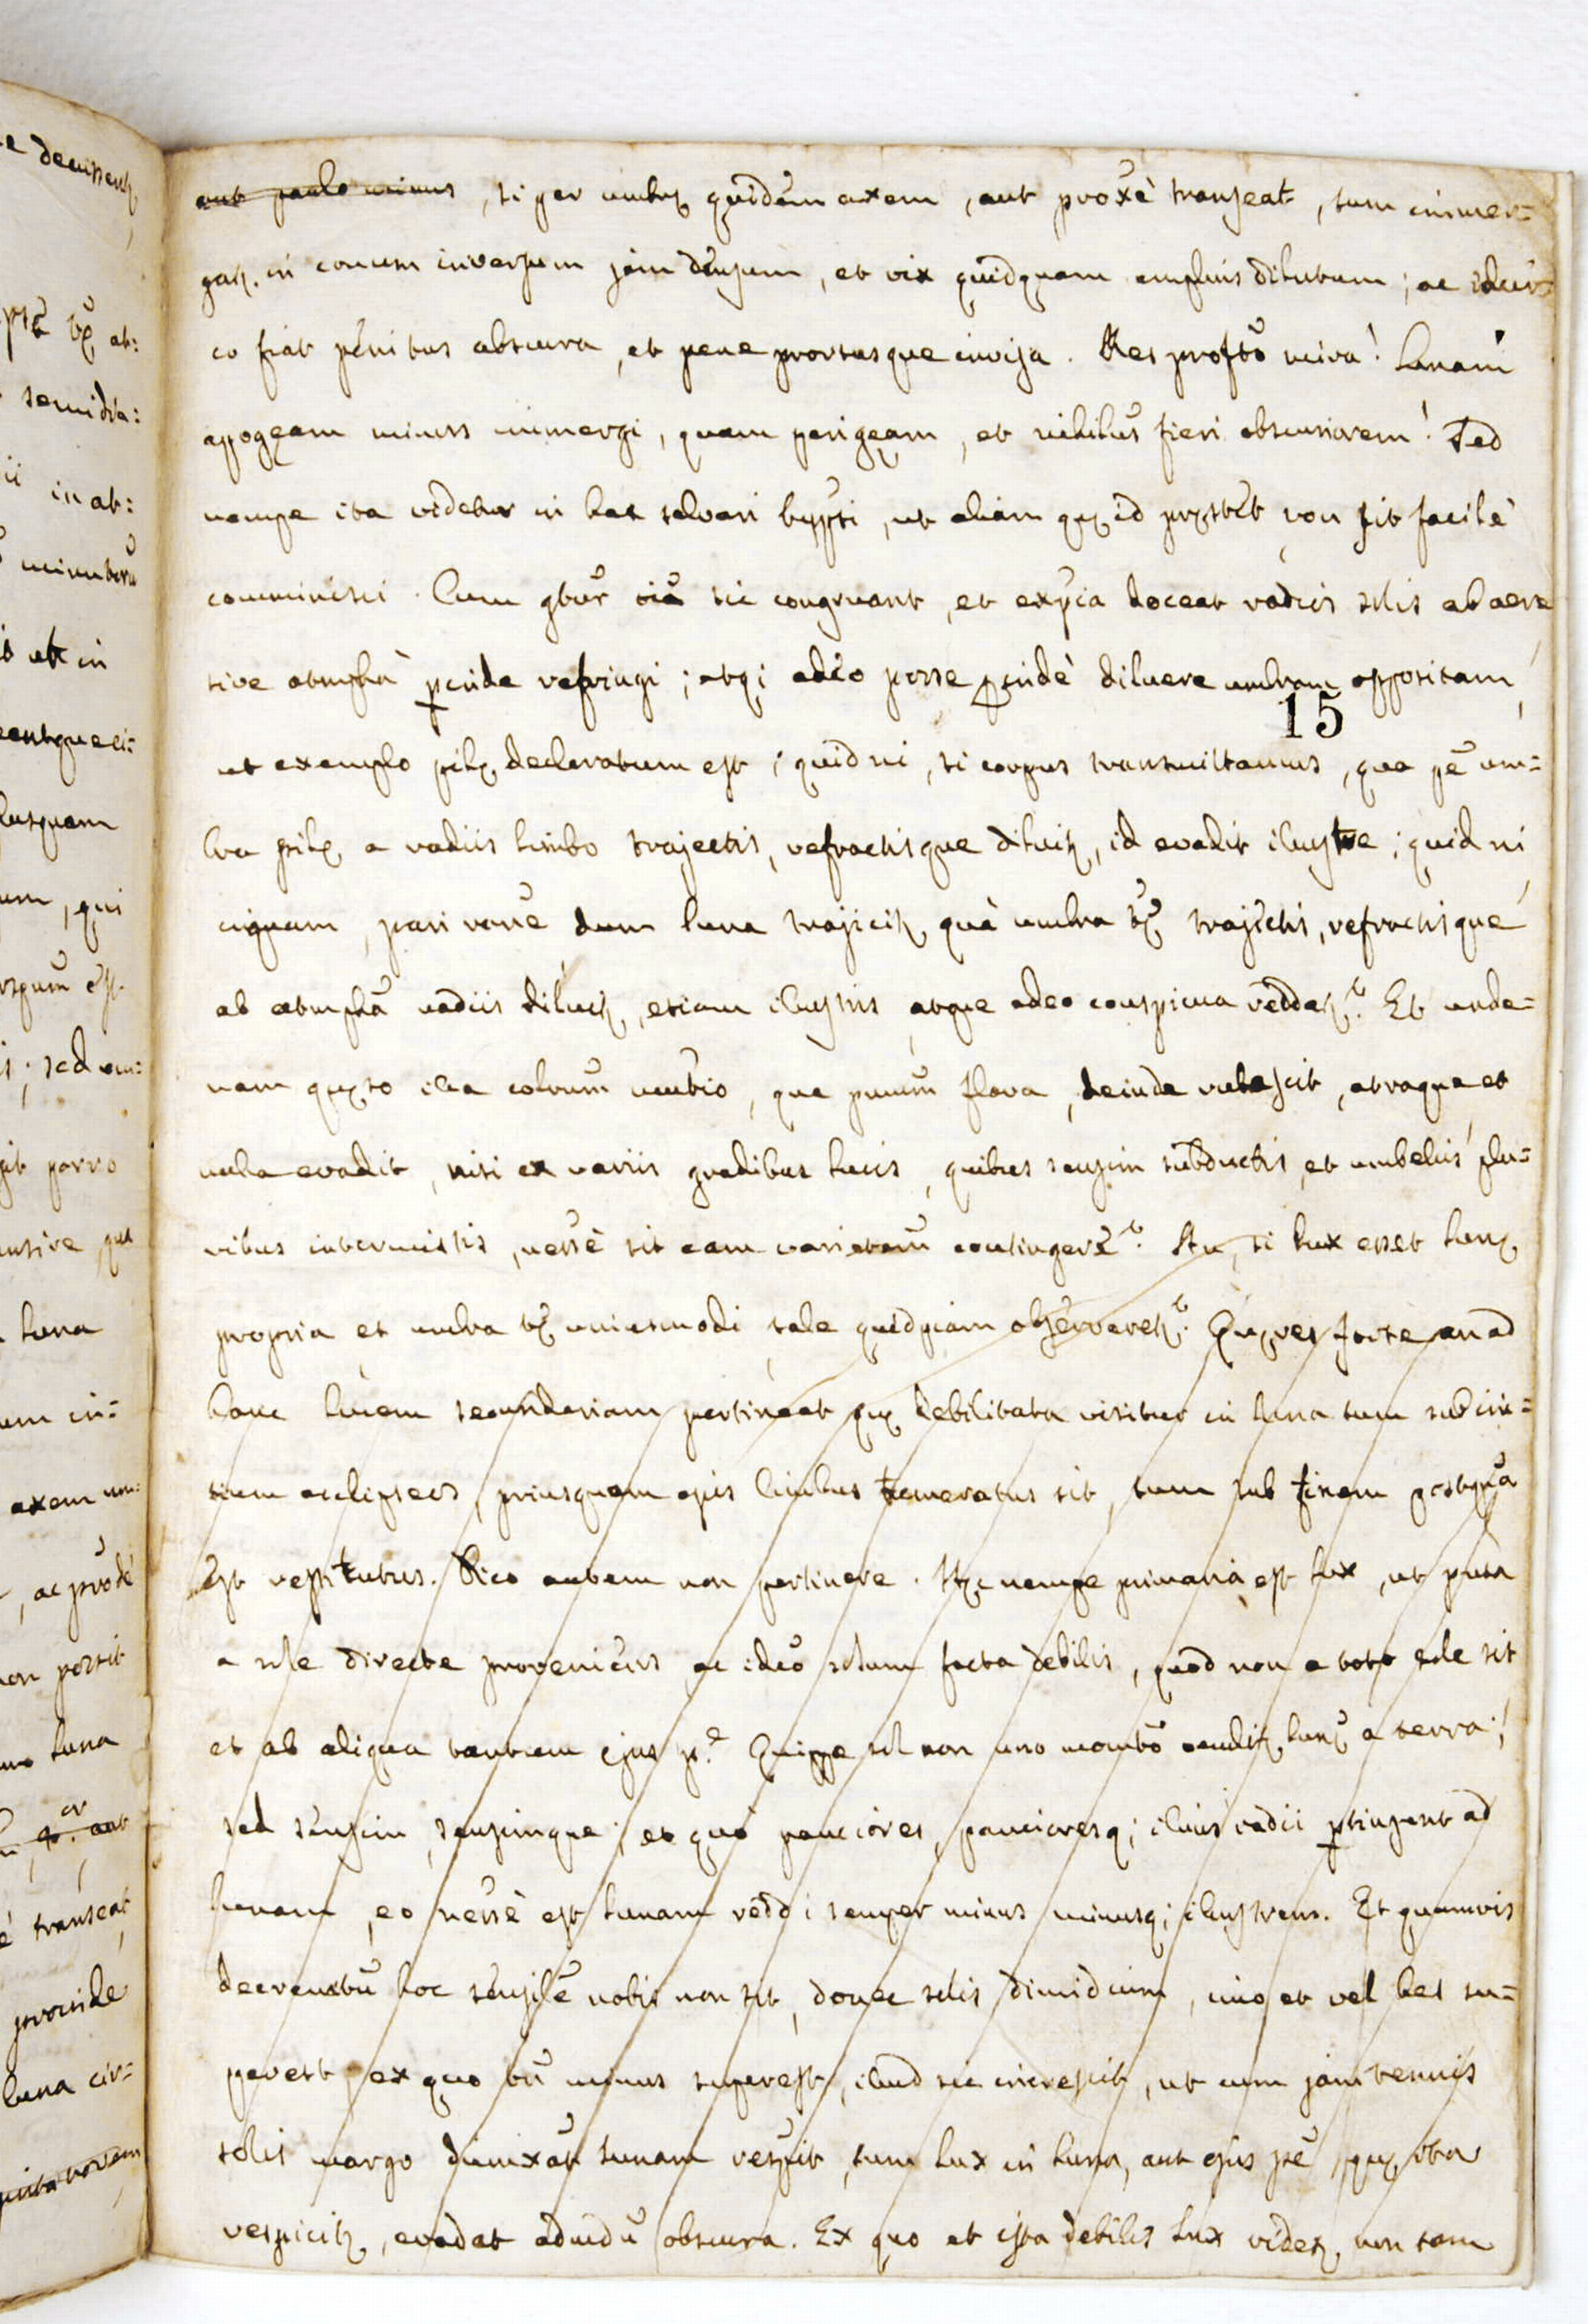 aut paulo minus, si per umbrę quidem axem, aut proxè transeat, tum immer=
gat in conum inversum jam densum, et vix quidquam amplius dilutum; ac idcir=
co fiat penitus obscura, et pene prorsusque invisa. Res profectò mira! Lunam
apogęam minus immergi, quam perigęam, et nihilũs fieri obscuriorem! Sed
nempe ita videtur in hac salvari hypsi, ut aliam quę id pręstet non sit facilè
comminisci. Cum gtur oia sic congruant, et expia doceat radios solis ab aere
sive atmsphà perinde refringi; atq; adeo posse perindè diluere umbram oppositam,
15
ut exemplo pilę declaratum est; quidni, si corpus transmittamus, qua pe um=
bra pilę a radiis limbo trajectis, refractisque diluit, id evadit illustre; quid ni
inquam, pari rone dum luna trajicit, quà umbra trę trajectis, refractisque
ab atmsphà radiis diluit, etiam illustris, atque adeo conspicua reddat? Et unde=
nam quęso illa colorum mutatio, que primum flava, deinde rubescit, atraque et
nulla evadit, nisi ex variis gradibus lucis, quibus sensim subductis, et umbellis plu=
ribus intermistis, necessè sit eam varietatem contingere? An, si lux esset lunę
propria et umbra trę uniusmodi tale quidpiam observaret? Quęres forte an ad
hanc lucem secundariam pertineat quę debilitata visitur in luna tum sub ini=
tium eclipseos, priusquam ejus limbus temeratus sit, tum sub finem postquã
est restitutus. Dico autem non pertinere. Hęc nempe primaria est lux, ut puta
a sole directe proveniens ac ideo solum facta debilis, quod non a toto sole sit
et ab aliqua tantum ejus pe. Quippe sol non uno momto occultat lunę a terra;
sed sensim, sensimque; et quo pauciores, pauciores q; illius radii pertingunt ad
lunam, eo necessè est lunam reddi semper minus minusq; illustrem. Et quamvis
decrementũ hoc sensile nobis non sit, donec solis dimidium, imo et vel bes su=
perest ex quo tũ minus superest, illud sic increscit, ut cum jam tenuis
solis margo dumxat lunam respicit, tum lux in luna, aut ejus pe, quę ita
respicit, evadat admdũ obscura. Ex quo et ista debilis lux videt non tam